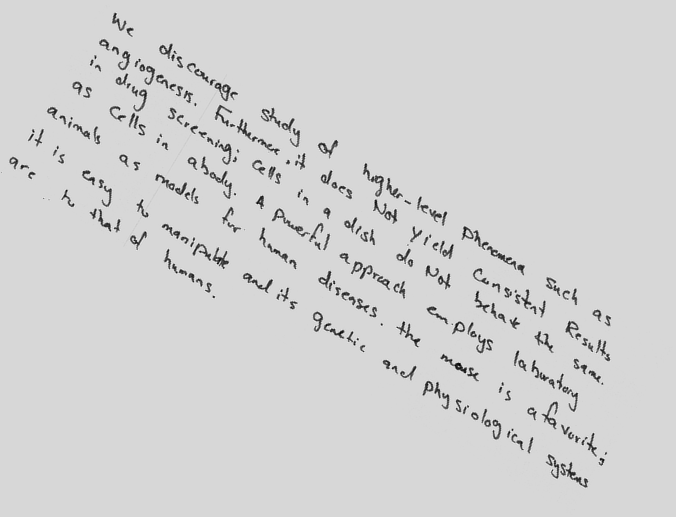 We discourage study of higher-level phenomena such as
angiogenesis. Furthermore, it does Not Yield Consistent Results
in drug screening; cells in a dish do Not behave the same.
as cells in abody. A powerful approach employs laboratory
animals as models for human diseases. the mouse is a favorite;
it is easy to manipulate and its genetic and physiological systems
are to that of humans.